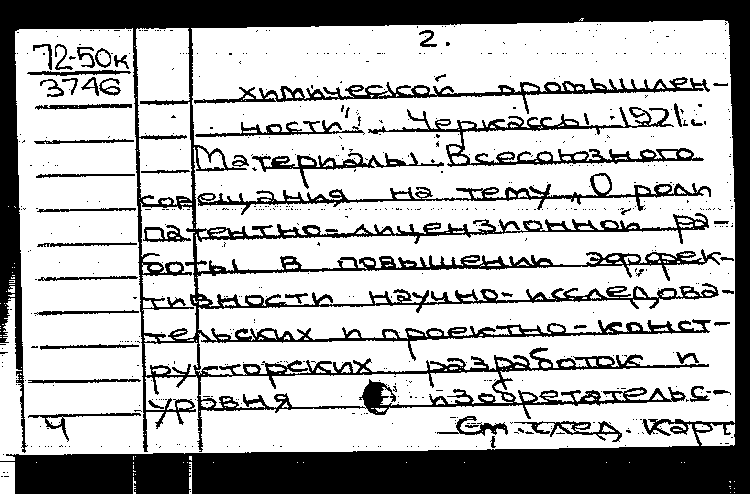 2.
72-50к
3746
химической промышлен-
ности". Черкассы, 1971.
Материалы Всесоюзного
совещания на тему „О роли
патентно-лицензионной ра-
боты в повышении эффек-
тивности научно-исследова-
тельских и проектно-конст-
рукторских разработок и
уровня изобретательс-
Ч
См. след. карт